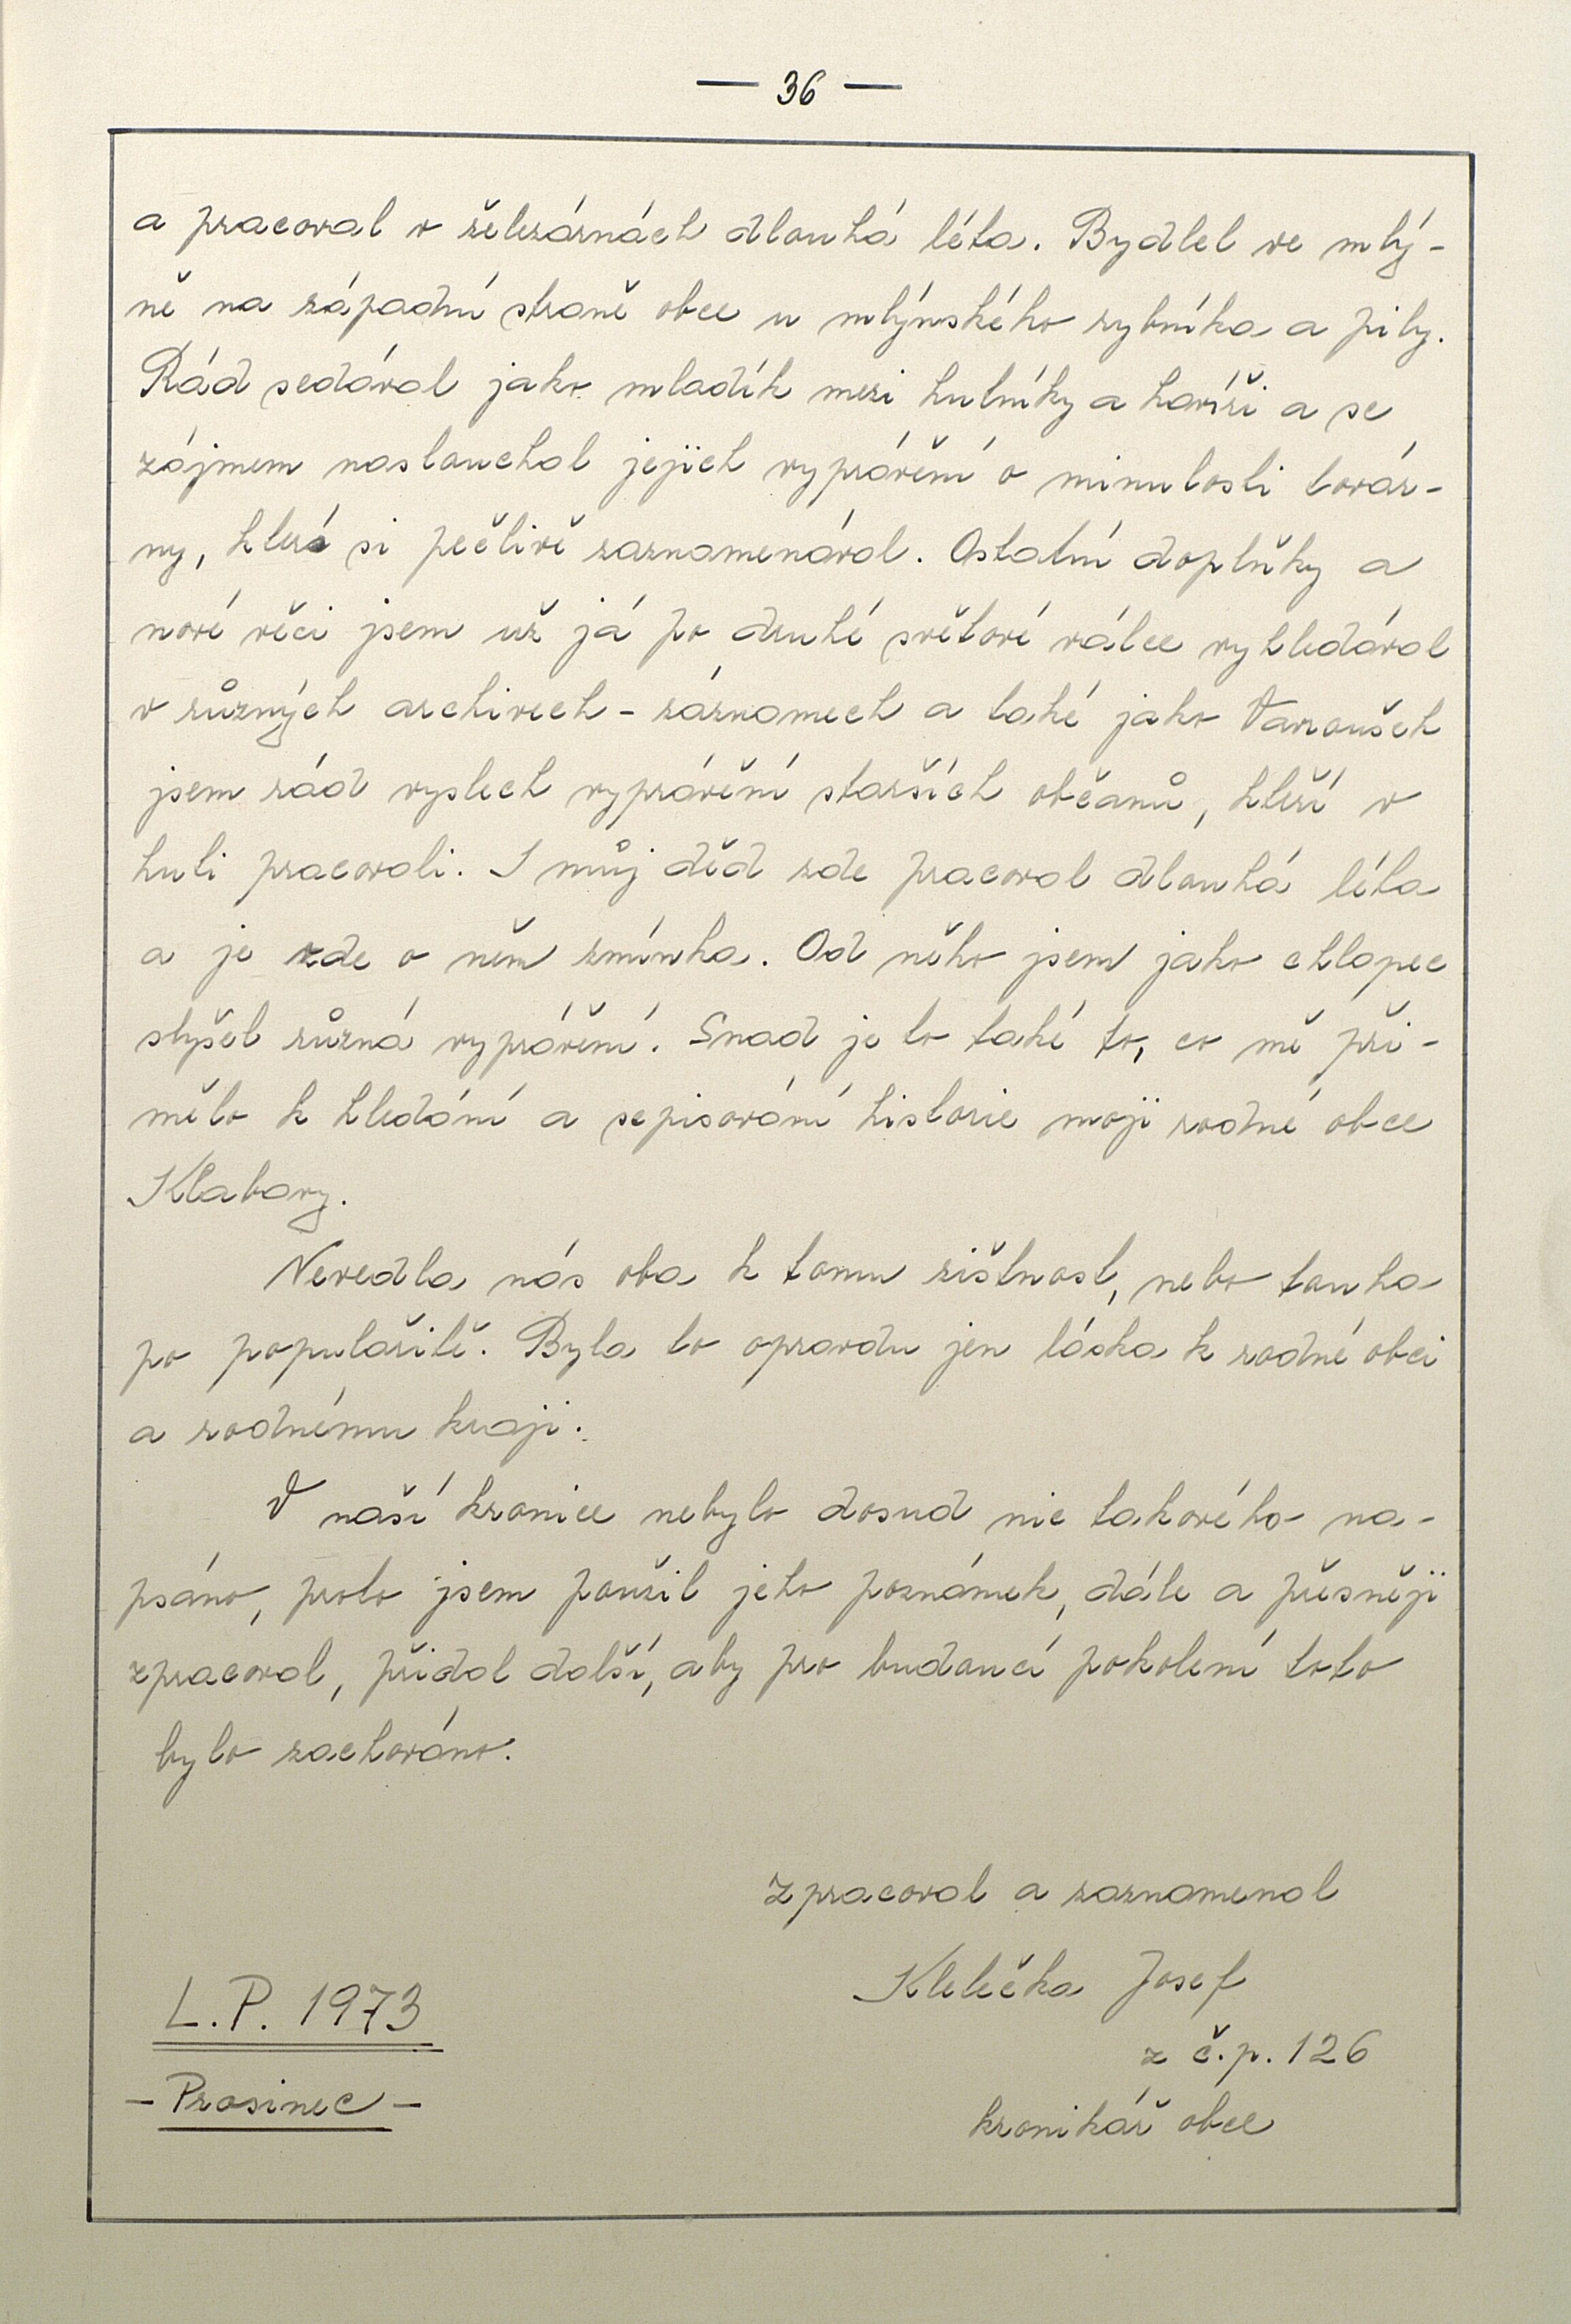 — 36 —
a pracoval v železárnách dlouhá léta. Bydlel ve mlý-
ně na západní straně obce u mlýnského rybníka a pily.
Rád sedával jako mladík mezi hutníky a havíři a se
zájmem naslouchal jejich vyprávění o minulosti továr-
ny, které si pečlivě zaznamenával. Ostatní doplňky a
nové věci jsem už já po druhé světové válce vyhledával
v různých archivech - záznamech a také jako Vanoušek
jsem rád vyslech vyprávění starších občanů, kteří v
huti pracovali. I můj děd zde pracoval dlouhá léta
a je zde o něm zmínka. Od něho jsem jako chlapec
slyšel různá vyprávění. Snad je to také to, co mě při-
mělo k hledání a sepisování historie moji rodné obce
Klabavy.
Nevedla nás oba k tomu zištnost, nebo touha
po populařitě. Byla to opravdu jen láska k rodné obci
a rodnému kraji.
V naší kronice nebylo dosud nic takového na-
psáno, proto jsem použil jeho poznámek, dále a přesněji
zpracoval, přidal další, aby pro budoucí pokolení toto
bylo zachováno.
Zpracoval a zaznamenal
Klelečka Josef
L.P. 1973
z č.p. 126
- Prosinec -
kronikář obce